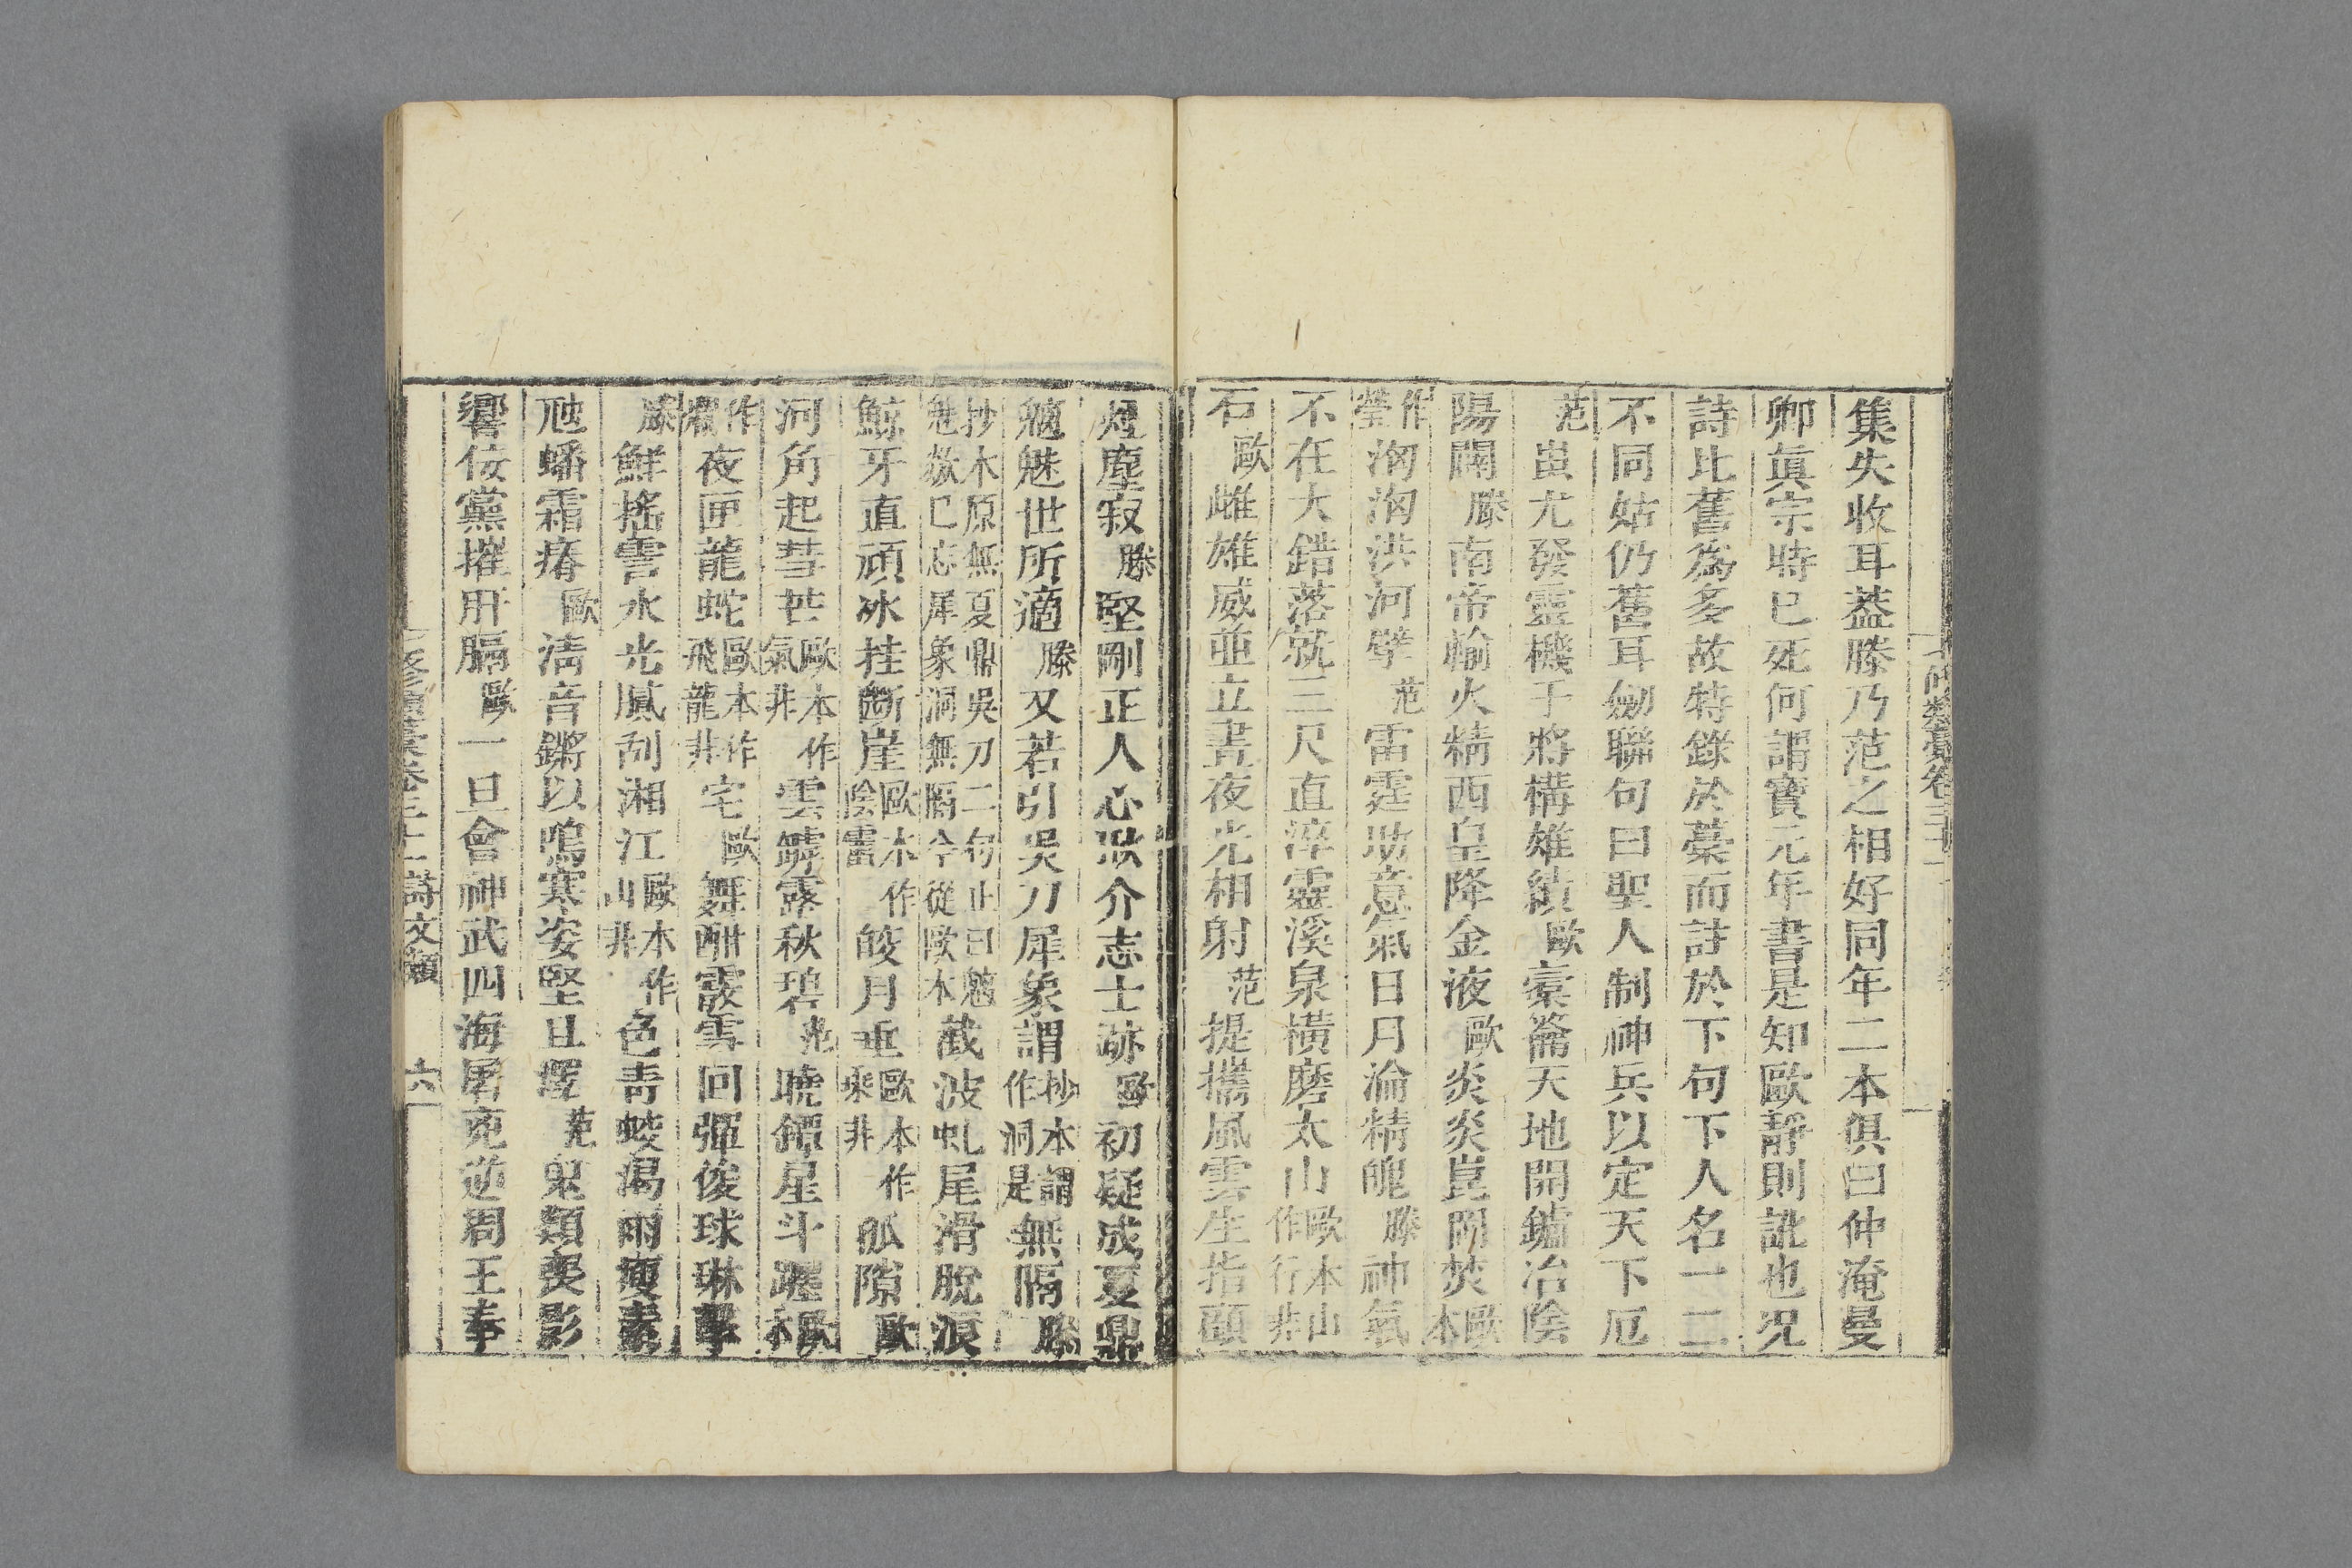 集失收耳蓋滕乃范之相好同年二本俱曰仲淹曼
卿真宗時已死何謂寶元年書是知歐靜則訛也况
詩比舊為多故特錄於藁而註於下句下人名一二
不同姑仍舊耳劒聯句曰聖人制神兵以定天下厄
范蚩尤發靈機干將構雄績歐橐籥天地開鑪冶陰
陽闢滕南帝輸火精西皇降金液歐炎炎崑岡焚歐本
作瑩洶洶洪河擘范雷霆助意氣日月淪精魄滕神氣
不在大錯落就三尺直淬靈溪泉橫磨太山歐本山作行非
石歐雌雄威並立晝夜光相射范提攜風雲生指顧
煙塵寂滕堅剛正人心耿介志士跡歐初疑成夏鼎
魑魅世所適滕又若引吳刀犀象謂抄本謂作洞是無隔滕
抄本原無夏鼎吳刀二句止曰魑魅敬已忘犀象洞無隔今從歐本截波虬尾滑脫浪
鯨牙直頑冰挂斷崖歐本作陰霤皎月垂歐本作乘非孤隙歐
河角起彗芒歐本作氣非雲罅露秋碧范曉鐔星斗躍歐本
作爛夜匣龍蛇歐本作飛龍非宅歐舞酣霰雪回彈俊球琳擊
滕鮮搖雲水光膩刮湘江歐本作山非色青蛟渴雨瘦素
虺蟠霜瘠歐清音鏘以鳴寒姿堅且澤范鬼類喪影
響佞黨摧肝膈歐一旦會神武四海屠兇逆周王奉
七修類藁卷三十一詩文類
六